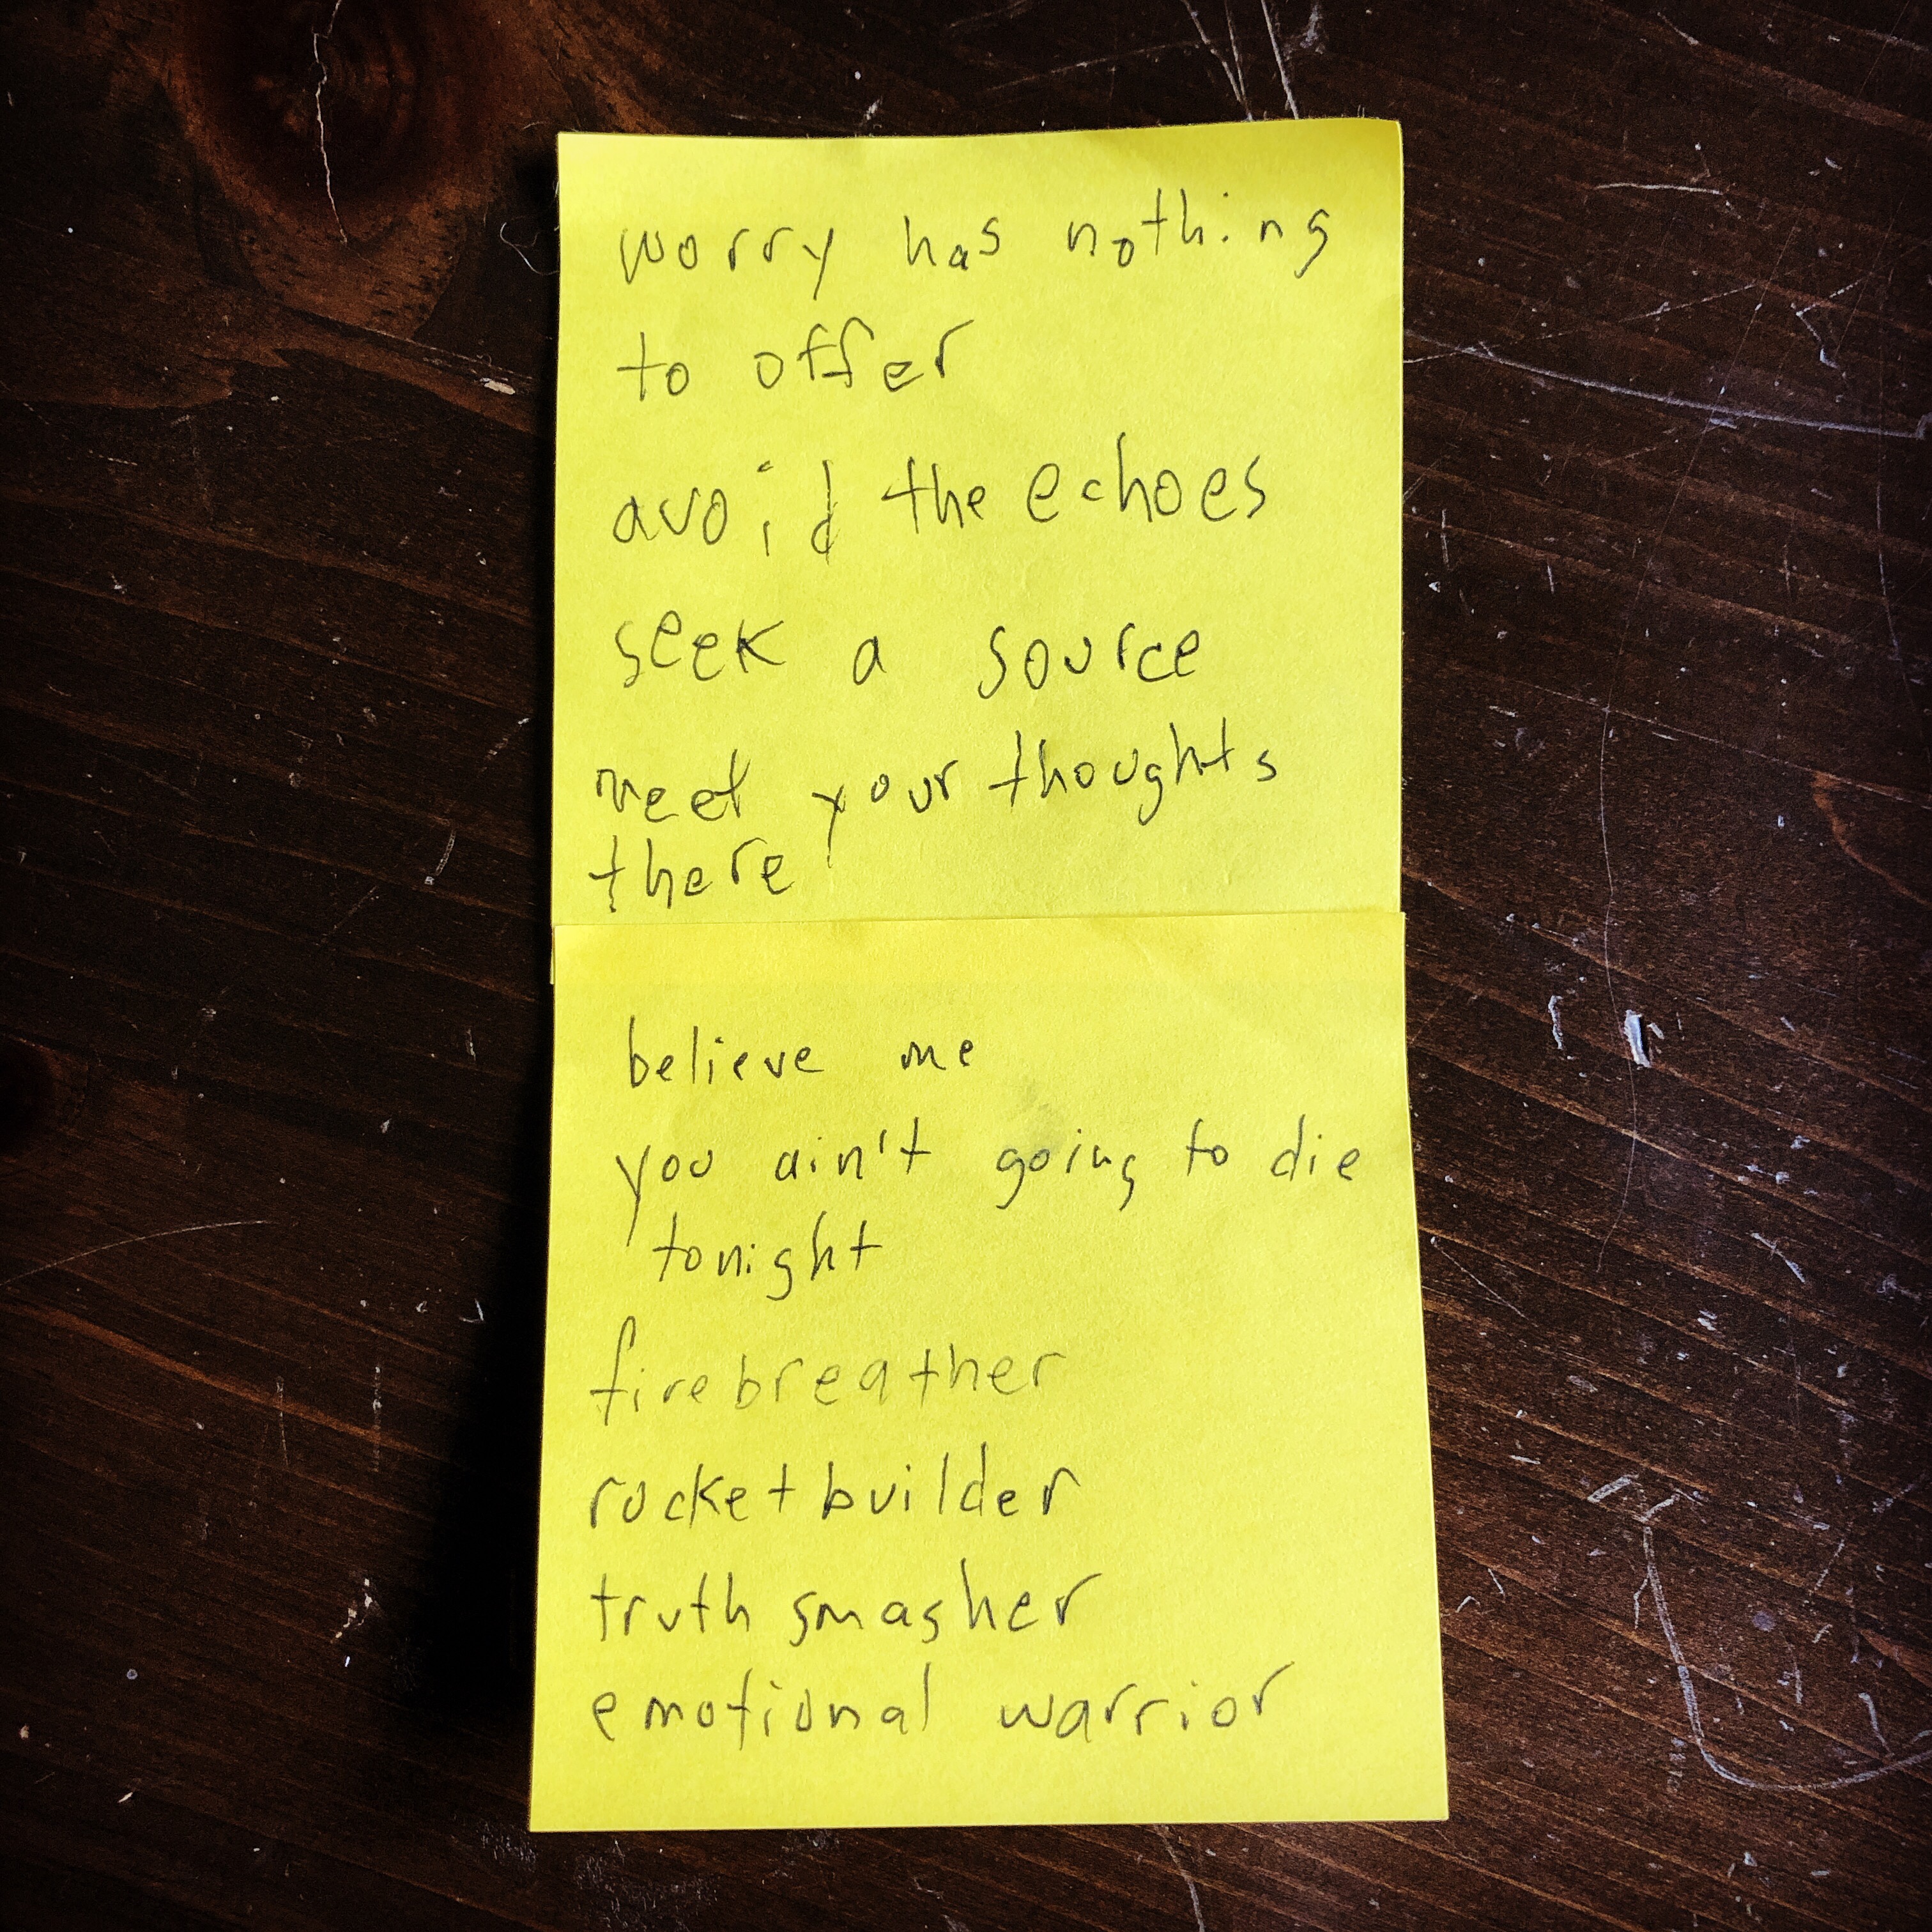 worry has nothing
to offer
avoid the echoes
seek a source
meet your thoughts
there
believe me
you ain't going to die
tonight
firebreather
rocketbuilder
truth smasher
emotional warrior